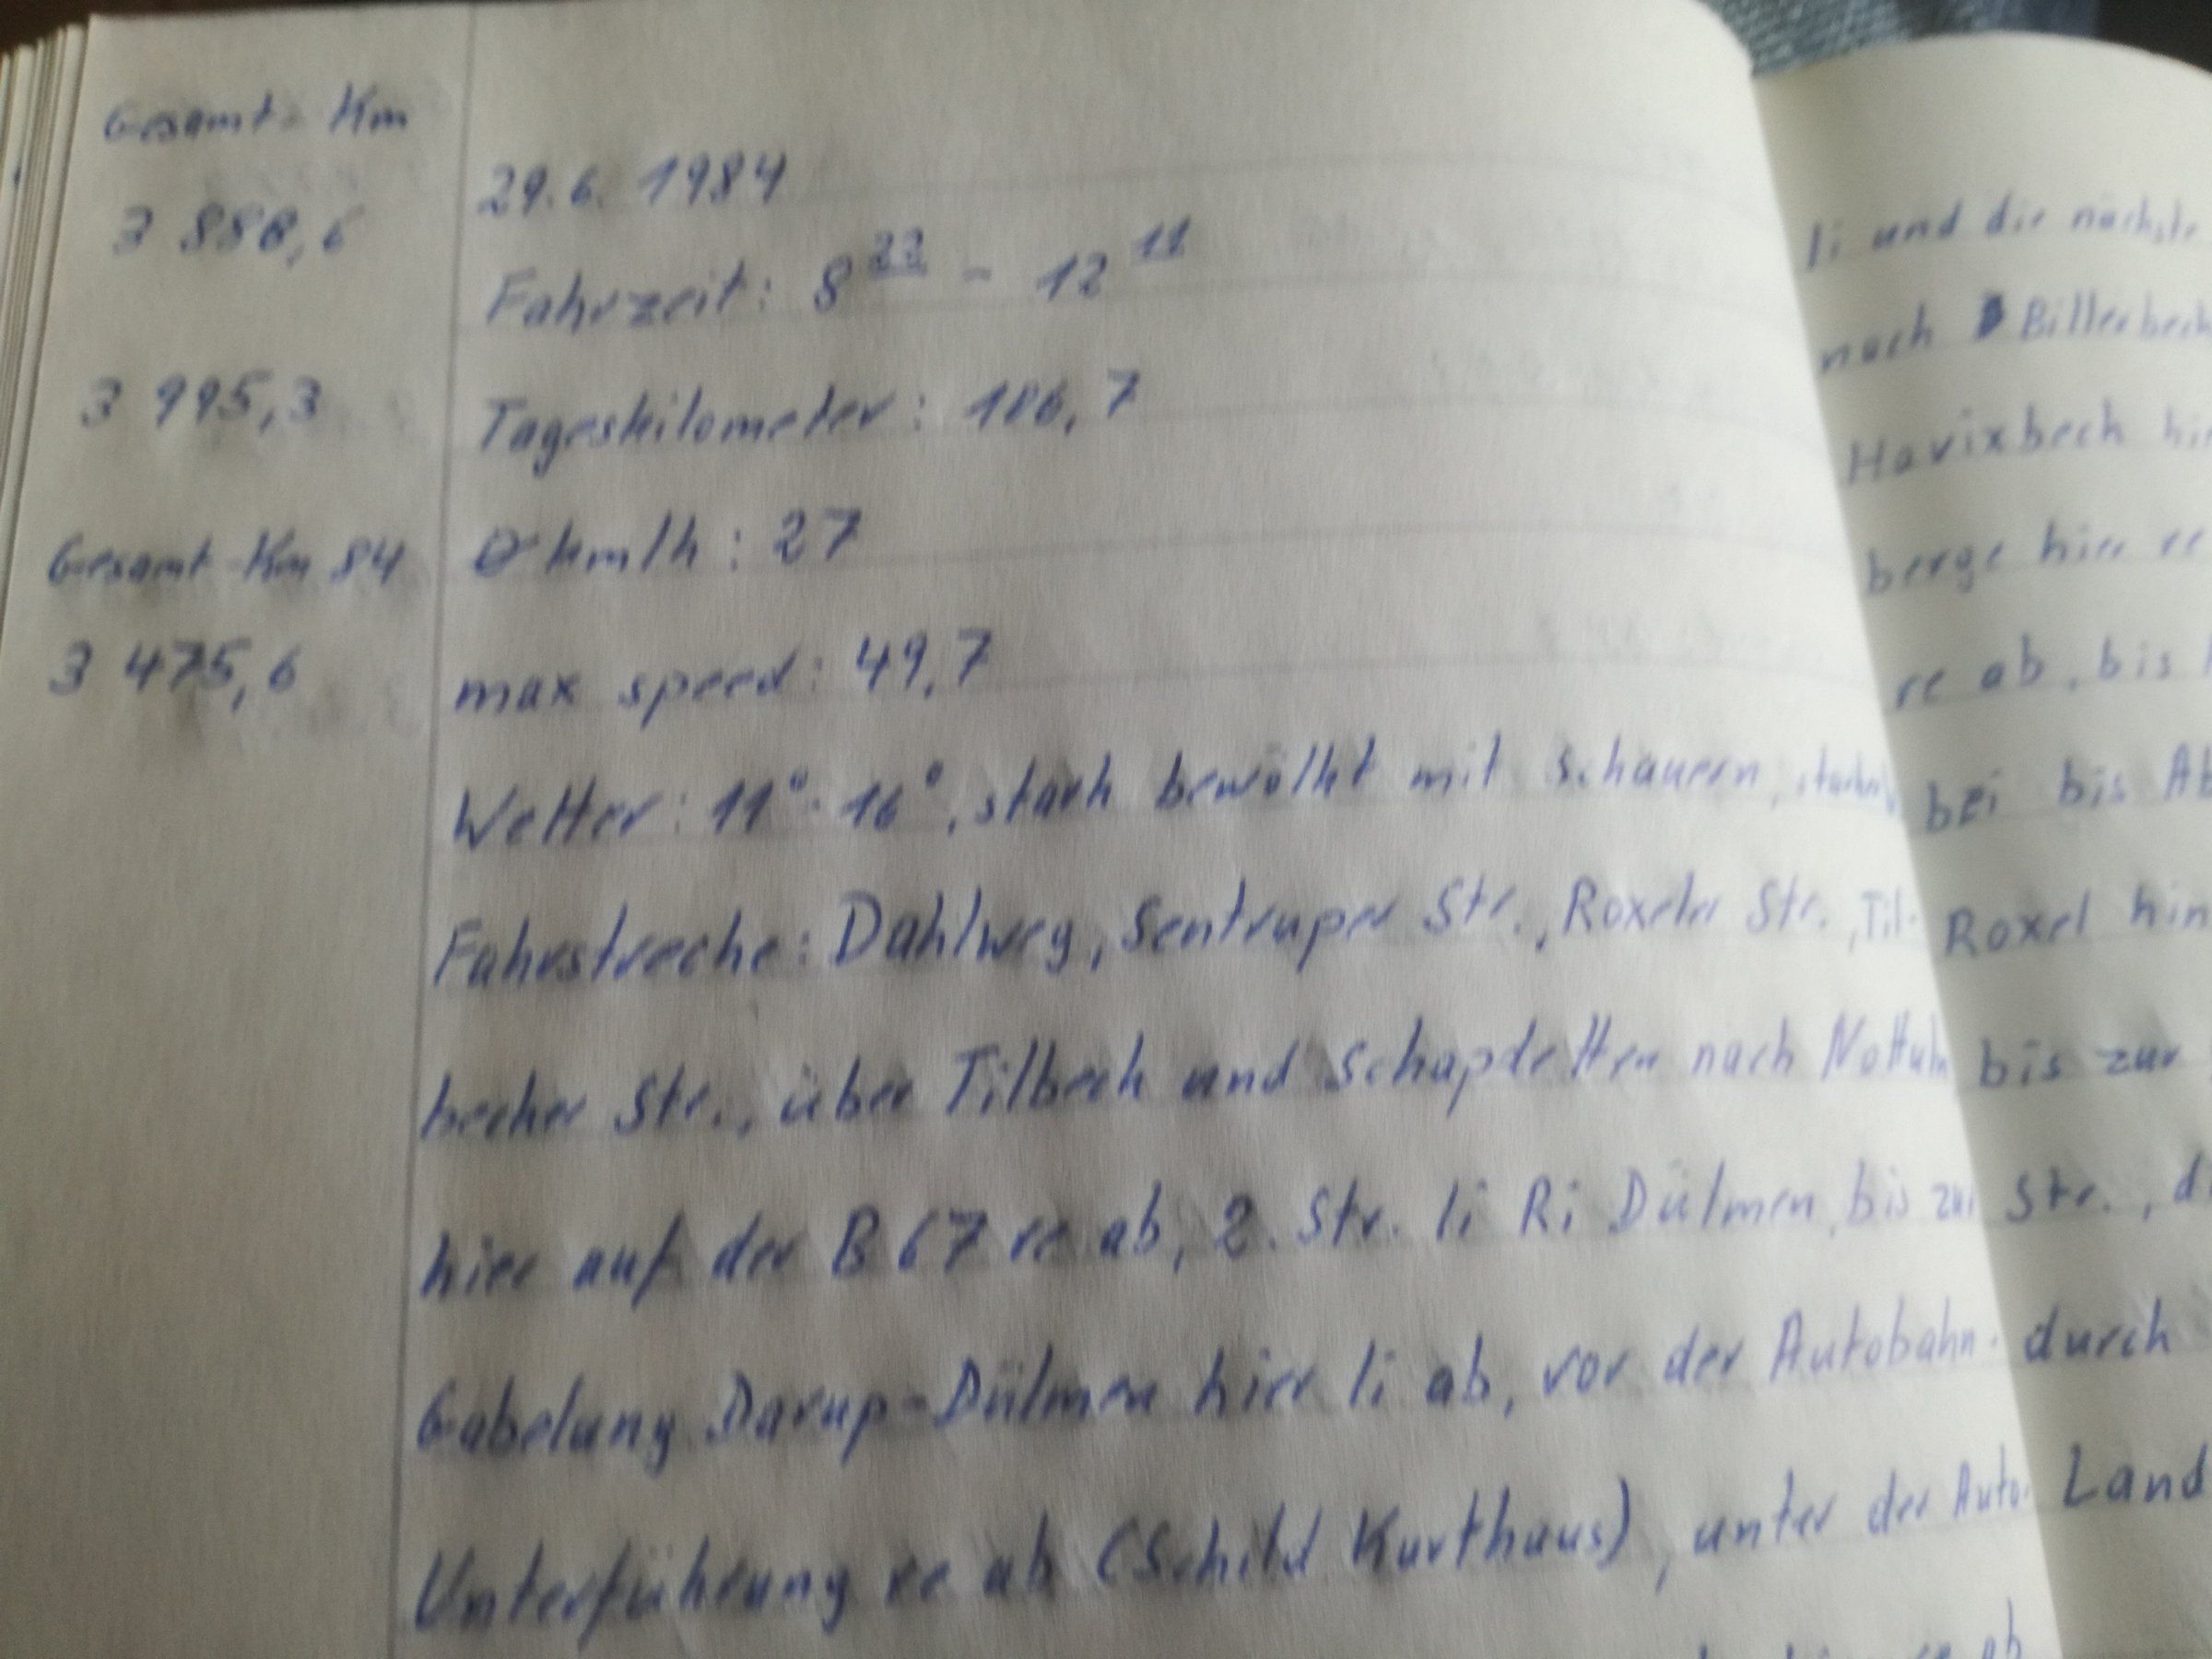 Gesamt-Km
3 888,6
3 995,3
Gesamt-Km 84
3 475,6
29.6. 1984
Fahrzeit: 8 22 - 12 11
Tageskilometer: 106,7
Ø km/h: 27
max speed: 49,7
Wetter: 11°-16°, stark bewölkt mit Schauern,
Fahrstrecke: Dahlweg, Sentruper Str., Roxeler Str., Til-
becker Str., über Tilbeck und Schapdetten nach Nottuln
hier auf der B 67 re ab, 2. Str. li Ri Dülmen, bis zur
Gabelung Darup-Dülmen hier li ab, vor der Autobahn-
Unterführung re ab (Schild Karthaus), unter der Auto-
re ab
li und die nächste
nach Billerbeck
Havixbeck
berge hier re
re ab, bis
bei bis
Roxel
bis zur
Str.,
durch
Land